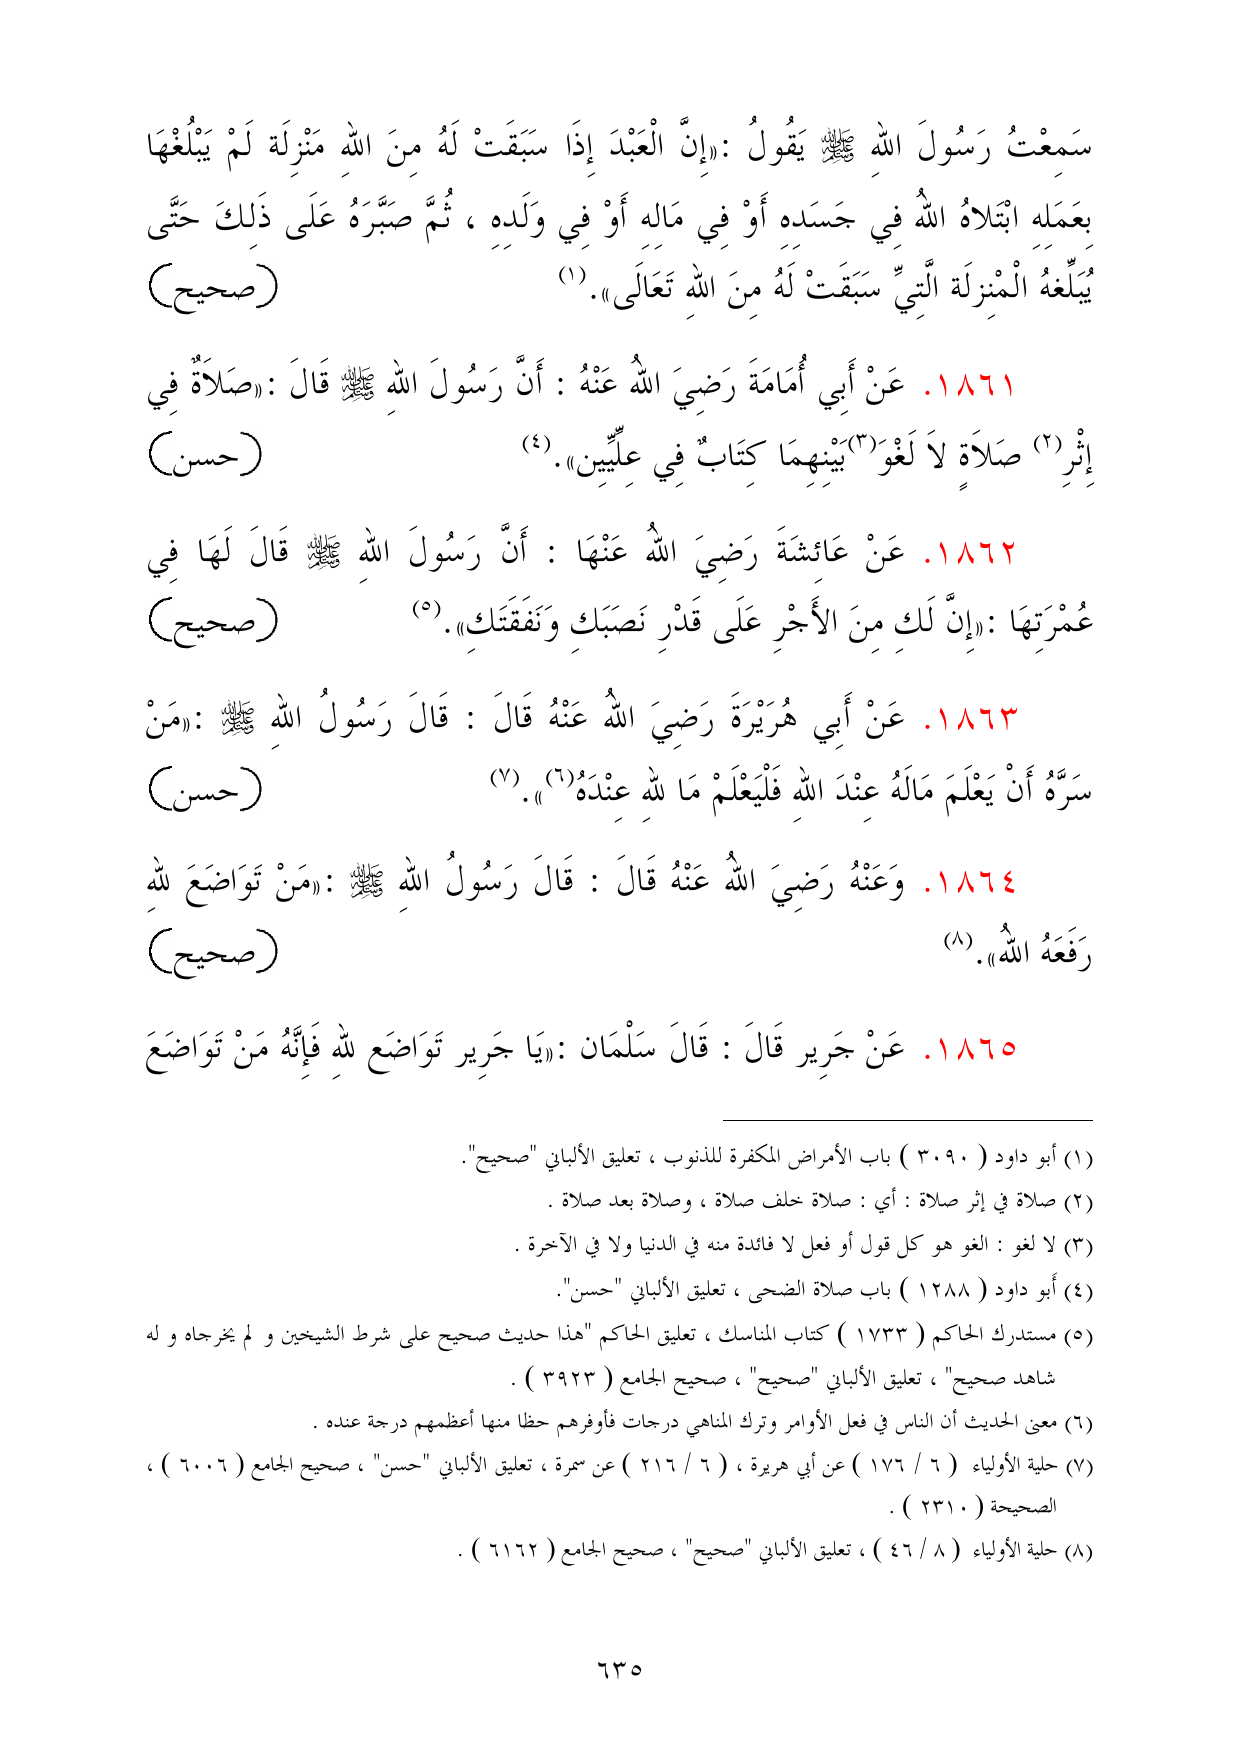 سَمِعْتُ رَسُولَ اللهِ ﷺ يَقُولُ :«إِنَّ الْعَبْدَ إِذَا سَبَقَتْ لَهُ مِنَ اللهِ مَنْزِلَة لَمْ يَبْلُغْهَا
بِعَمَلِهِ ابْتَلاهُ اللهُ فِي جَسَدِهِ أَوْ فِي مَالِهِ أَوْ فِي وَلَدِهِ ، ثُمَّ صَبَّرَهُ عَلَى ذَلِكَ حَتَّى
يُبَلِّغهُ الْمْنِزلَة الَّتِيِّ سَبَقَتْ لَهُ مِنَ اللهِ تَعَالَى».(١) (صحيح)
١٨٦١. عَنْ أَبِي أُمَامَةَ رَضِيَ اللهُ عَنْهُ : أَنَّ رَسُولَ اللهِ ﷺ قَالَ :«صَلاَةٌ فِي
إِثْرِ(٢) صَلاَةٍ لاَ لَغْوَ(٣)بَيْنِهِمَا كِتَابٌ فِي عِلِّيِّين».(٤) (حسن)
١٨٦٢. عَنْ عَائِشَةَ رَضِيَ اللهُ عَنْهَا : أَنَّ رَسُولَ اللهِ ﷺ قَالَ لَهَا فِي
عُمْرَتِهَا :«إِنَّ لَكِ مِنَ الأَجْرِ عَلَى قَدْرِ نَصَبَكِ وَنَفَقَتَكِ».(٥) (صحيح)
١٨٦٣. عَنْ أَبِي هُرَيْرَةَ رَضِيَ اللهُ عَنْهُ قَالَ : قَالَ رَسُولُ اللهِ ﷺ :«مَنْ
سَرَّهُ أَنْ يَعْلَمَ مَالَهُ عِنْدَ اللهِ فَلْيَعْلَمْ مَا للهِ عِنْدَهُ(٦)».(٧) (حسن)
١٨٦٤. وَعَنْهُ رَضِيَ اللهُ عَنْهُ قَالَ : قَالَ رَسُولُ اللهِ ﷺ :«مَنْ تَوَاضَعَ للهِ
رَفَعَهُ اللهُ».(٨) (صحيح)
١٨٦٥. عَنْ جَرِير قَالَ : قَالَ سَلْمَان :«يَا جَرِير تَوَاضَع للهِ فَإِنَّهُ مَنْ تَوَاضَعَ
(١) أبو داود ( ٣٠٩٠ ) باب الأمراض المكفرة للذنوب ، تعليق الألباني "صحيح".
(٢) صلاة في إثر صلاة : أي : صلاة خلف صلاة ، وصلاة بعد صلاة .
(٣) لا لغو : الغو هو كل قول أو فعل لا فائدة منه في الدنيا ولا في الآخرة .
(٤) أَبو داود ( ١٢٨٨ ) باب صلاة الضحى ، تعليق الألباني "حسن".
(٥) مستدرك الحاكم ( ١٧٣٣ ) كتاب المناسك ، تعليق الحاكم "هذا حديث صحيح على شرط الشيخين و لم يخرجاه و له
شاهد صحيح" ، تعليق الألباني "صحيح" ، صحيح الجامع ( ٣٩٢٣ ) .
(٦) معنى الحديث أن الناس في فعل الأوامر وترك المناهي درجات فأوفرهم حظا منها أعظمهم درجة عنده .
(٧) حلية الأولياء ( ٦ / ١٧٦ ) عن أبي هريرة ، ( ٦ / ٢١٦ ) عن سمرة ، تعليق الألباني "حسن" ، صحيح الجامع ( ٦٠٠٦ ) ،
الصحيحة ( ٢٣١٠ ) .
(٨) حلية الأولياء ( ٨ / ٤٦ ) ، تعليق الألباني "صحيح" ، صحيح الجامع ( ٦١٦٢ ) .
٦٣٥